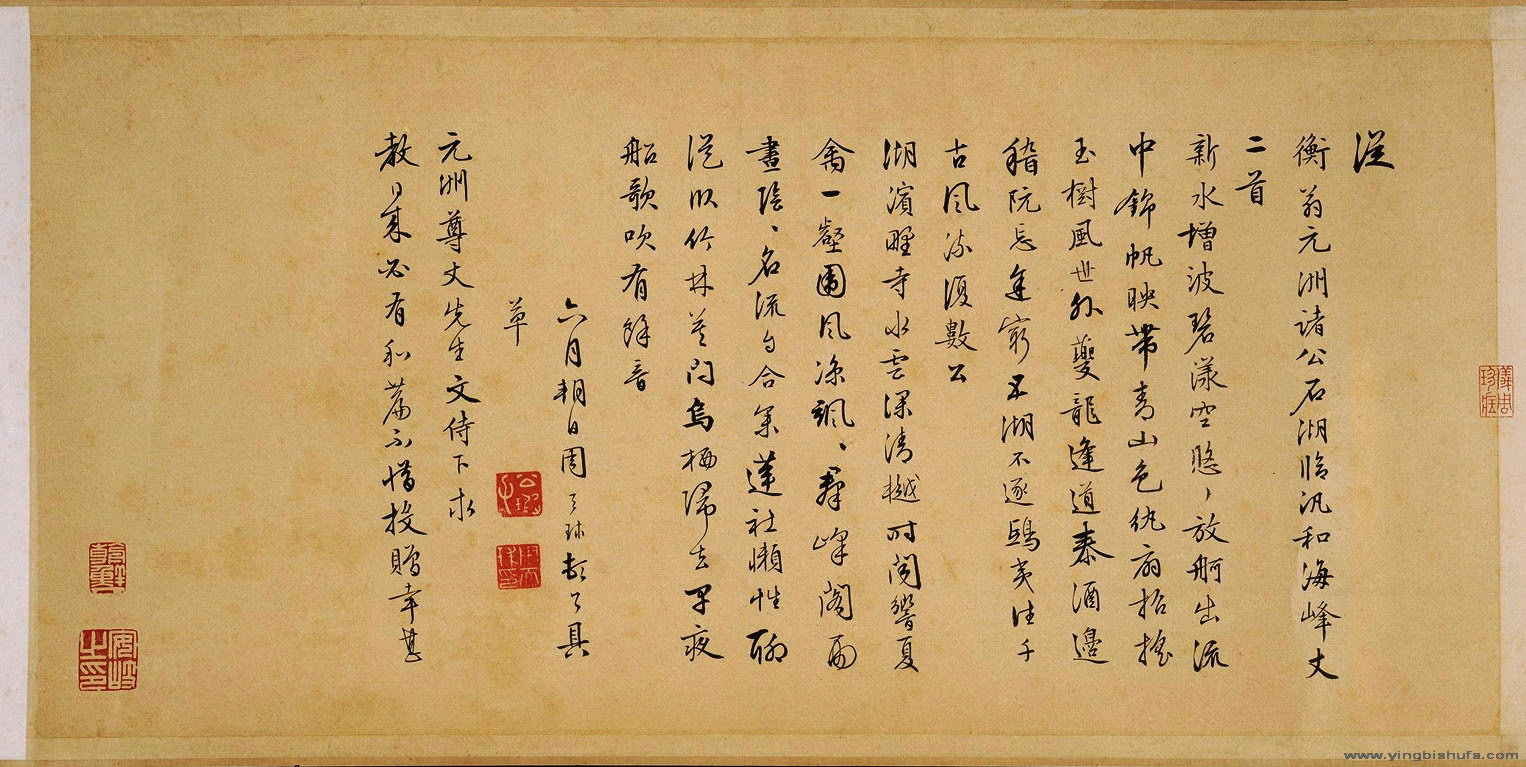 從
衡翁元洲諸公石湖臨汎和海峰丈
二首
新水增波碧漾空悠悠放舸出流
中錦帆映帶青山色紈扇招搖
玉樹風世外夔龍逢道泰酒邊
嵇阮忘年窮五湖不逐鴟夷往千
古風流復數公
湖濱野寺水雲深清樾時聞響夏
禽一壑園風涼颯颯群峰閣雨
晝陰陰名流自合參蓮社懶性聊
從似竹林薄門烏栖歸去早夜
船歌吹有餘音
六月朔日周天球頓首具
草
元洲尊丈先生文侍下求
教日來必有和篇不惜投贈幸甚
www.yingbishufa.com